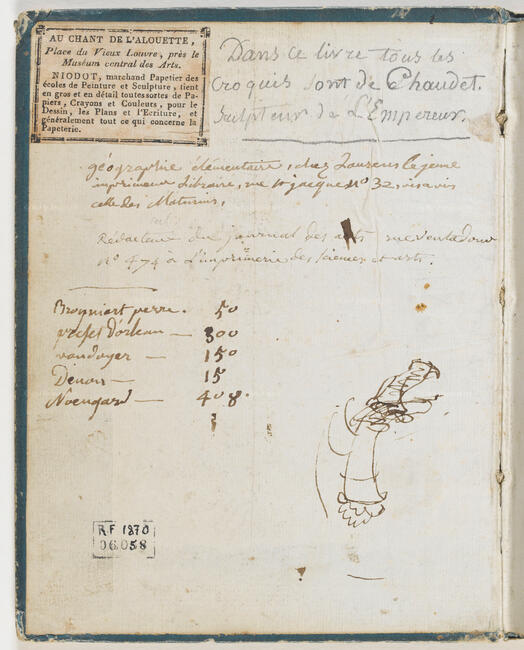 AU CHANT DE L'ALOUETTE,
Place du Vieux Louvre, près le
Muséum central des Arts.
NIODOT, marchand Papetier des
écoles de Peinture et Sculpture, tient
en gros et en détail toutes sortes de Pa-
piers, Crayons et Couleurs, pour le
Dessin, les Plans et l'Ecriture, et
généralement tout ce qui concerne la
Papeterie.
Dans ce livre tous les
croquis sont de Chaudet.
Sculpteur de L'Empereur.
géographie élémentaire, chez Laurens le jeune
imprimeur Libraire, rue St jacque no 32, vis avis
celle des Maturins.
Rédacteur du journal des arts rue ventadour
no 474 à L'imprimerie des sciences et arts.
Brogniart perre. 50
prefet d'orlean — 300
vaudoyer — 150
Denon — 15
408.
R.F 1870
06058